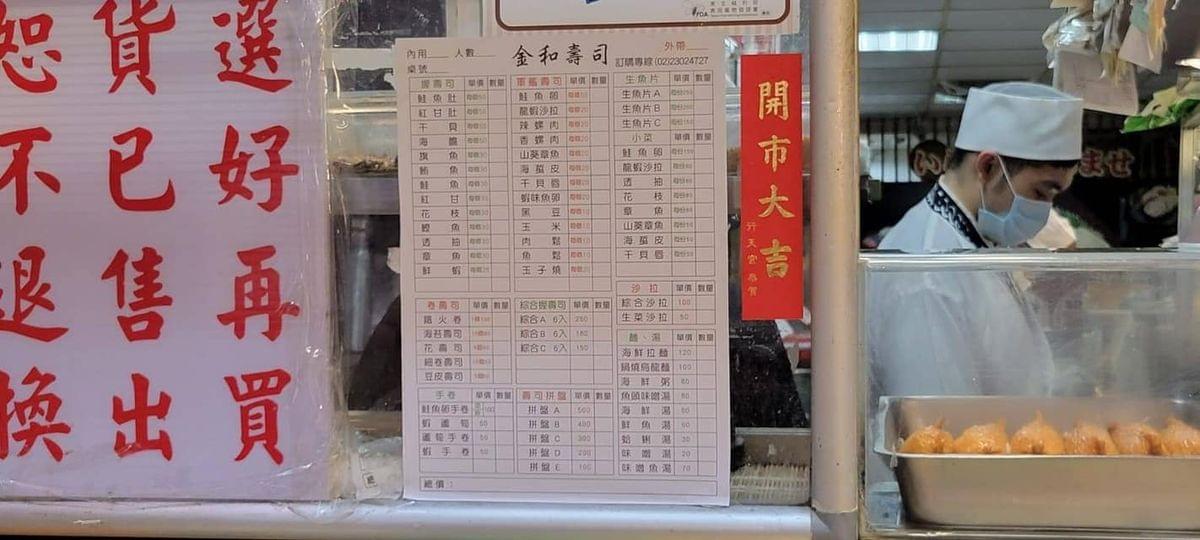 選好再買
貨已售出
恕不退換
金和壽司
內用 人數
桌號
外帶
訂購專線 (02)23024727
握壽司 單價 數量
鮭魚肚
紅甘肚
干貝
海膽
旗魚
鮪魚
鮭魚
紅甘
花枝
鰹魚
透抽
章魚
鮮蝦
軍艦壽司 單價 數量
鮭魚卵
龍蝦沙拉
辣螺肉
香螺肉
山葵章魚
海蜇皮
干貝唇
蝦味魚卵
黑豆
玉米
肉鬆
魚鬆
玉子燒
生魚片 單價 數量
生魚片A
生魚片B
生魚片C
小菜 單價 數量
鮭魚卵
龍蝦沙拉
透抽
花枝
章魚
山葵章魚
海蜇皮
干貝唇
沙拉 單價 數量
綜合沙拉 100
生菜沙拉 50
卷壽司 單價 數量
鐵火卷
海苔壽司
花壽司
細卷壽司
豆皮壽司
綜合握壽司 單價 數量
綜合A 6入 250
綜合B 6入 180
綜合C 6入 150
麵、湯 單價 數量
海鮮拉麵 120
鍋燒烏龍麵 100
海鮮粥 80
魚頭味噌湯 80
海鮮湯 60
鮮魚湯 60
蛤蜊湯 30
味噌湯 20
味噌魚湯 70
手卷 單價 數量
鮭魚卵手卷 100
蝦蘆筍 60
蘆筍手卷 50
蝦手卷 50
壽司拼盤 單價 數量
拼盤A 500
拼盤B 400
拼盤C 300
拼盤D 200
拼盤E 100
總價:
開市大吉
行天宮恭賀
ませ